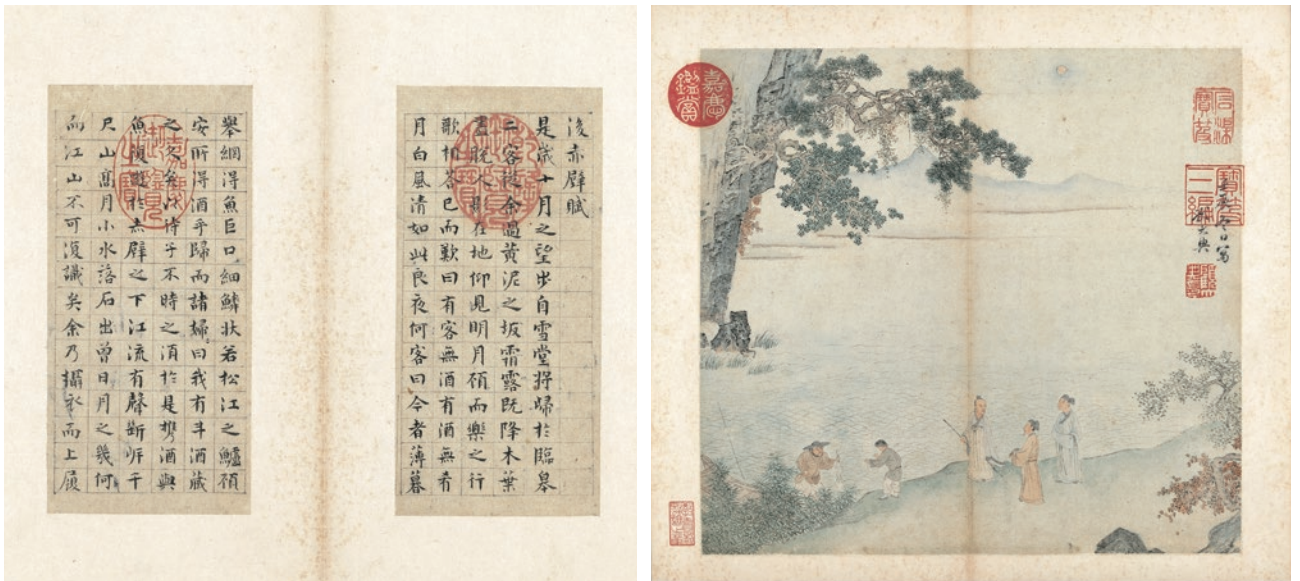 後赤壁賦
是歲十月之望步自雪堂將歸於臨皋
二客從余過黃泥之坂霜露既降木葉
盡脫人影在地仰見明月顧而樂之行
歌相答已而歎曰有客無酒有酒無肴
月白風清如此良夜何客曰今者薄暮
舉網得魚巨口細鱗狀若松江之鱸顧
安所得酒乎歸而諸婦曰我有斗酒藏
之久矣以待子不時之湏於是攜酒與
魚復遊於赤壁之下江流有聲斷岸千
尺山高月小水落石出曾日月之幾何
而江山不可復識矣余乃攝衣而上履
乾隆御覽之寶
嘉慶御覽之寶
嘉慶鑑賞
寶笈三編
冬日寫